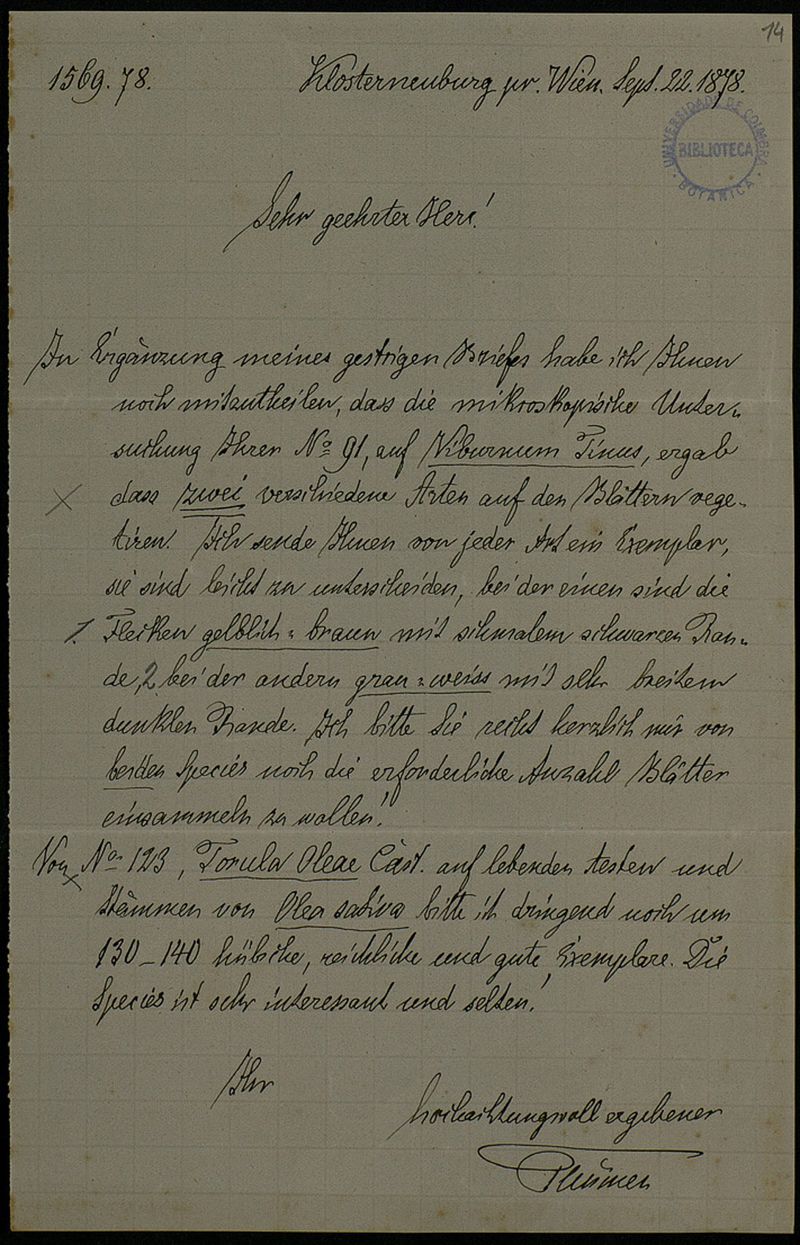 14
1569.78.
Klosterneuburg pr. Wien. Sept. 22. 1878.
UNIVERSIDADE DE COIMBRA
BIBLIOTECA
BOTANICA
Sehr geehrter Herr!
In Ergänzung meines gestrigen Briefes habe ich Ihnen
noch mitzutheilen, dass die mikroskopische Unter-
suchung Ihrer No 91, auf Viburnum Tinus, ergab
dass zwei verschiedene Arten auf den Blättern vege-
tiren. Ich sende Ihnen von jeder Art ein Exemplar,
sie sind leicht zu unterscheiden, bei der einen sind die
1. Flecken gelblich-braun mit schmalem schwarzen Ran-
de, 2 bei der andern grau-weiss mit sehr breitem
dunklen Rande. Ich bitte Sie recht herzlich mir von
beiden Species noch die erforderliche Anzahl Blätter
einsammeln zu wollen!
Von No 123, Torula Oleae Cast. auf lebenden Aesten und
Stämmen von Olea sativa bitte ich dringend noch um
130-140 hübsche, reichliche und gute Exemplare. Die
Species ist sehr interessant und selten!
Ihr
hochachtungsvoll ergebener
Thümen